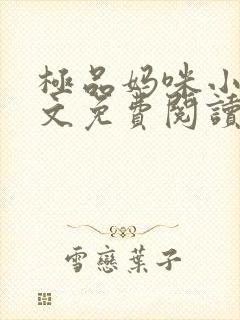 極品妈咪小
文免費閱讀
雪戀葉子